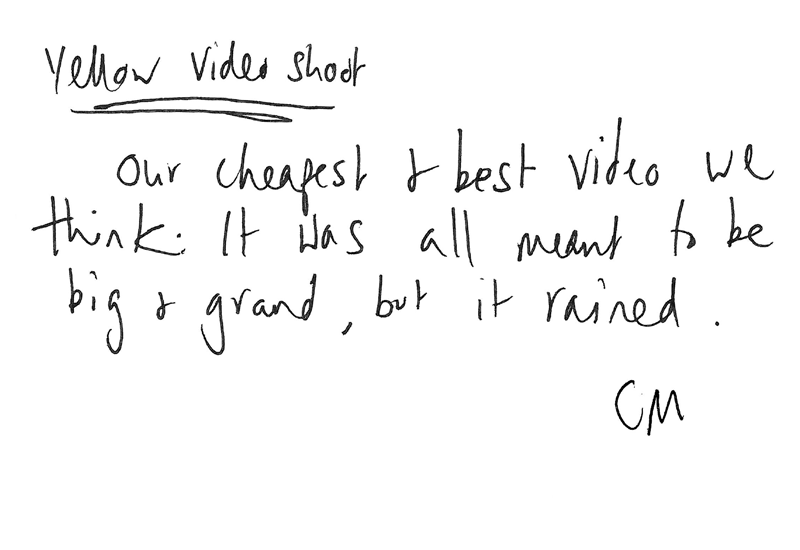 Yellow Video shoot
Our cheapest & best video we
think. It was all meant to be
big & grand, but it rained.
CM